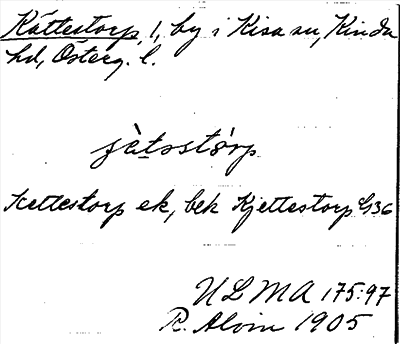 Kättestorp, 1, by i Kisa sn, Kinda
hd, Österg. l.
jètostòrp
Kettestorp ek, bek Kjettestorp G36
ULMA 175:97
R. Alvin 1905